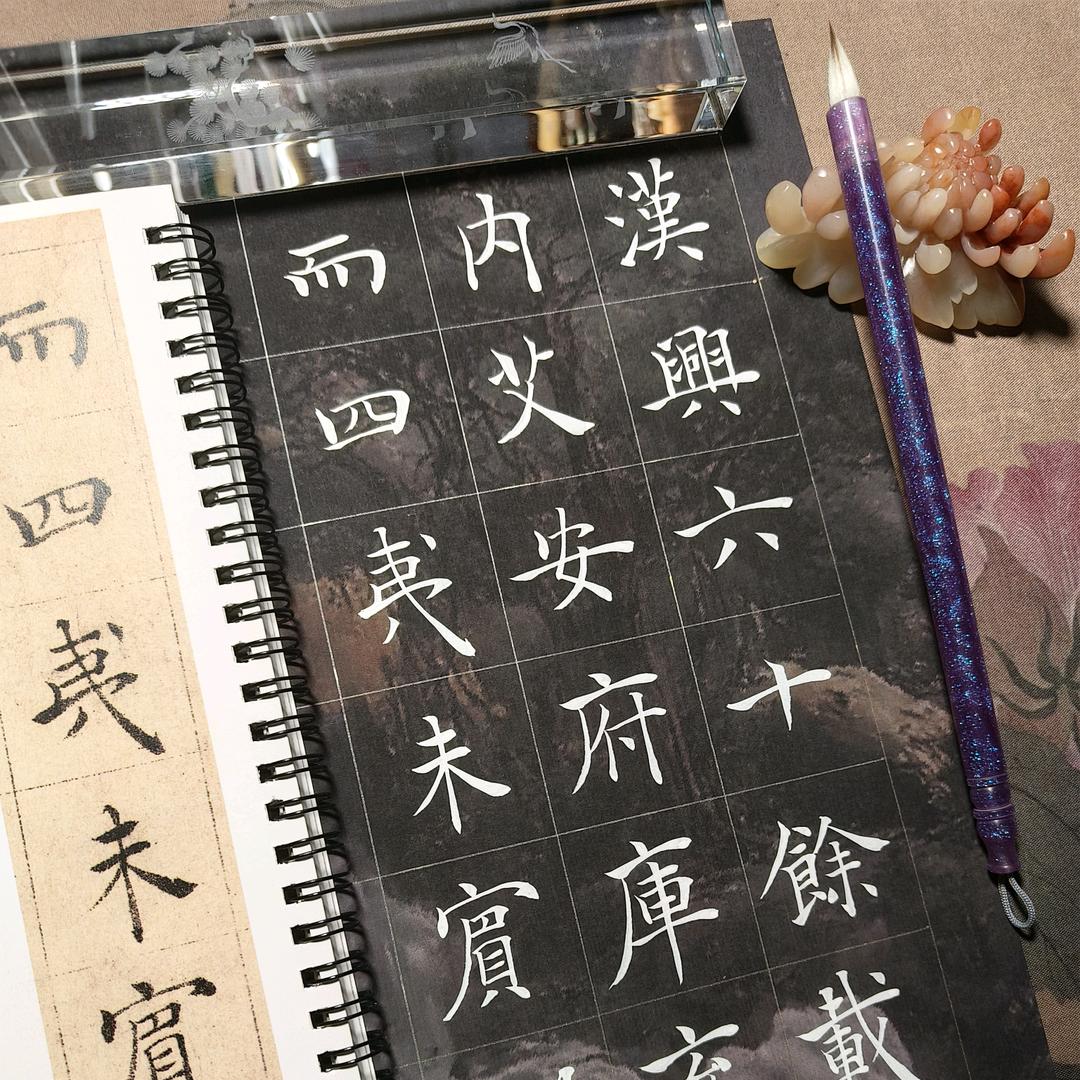 漢興六十餘載
内艾安府庫充
而四夷未賓
而四夷未賓